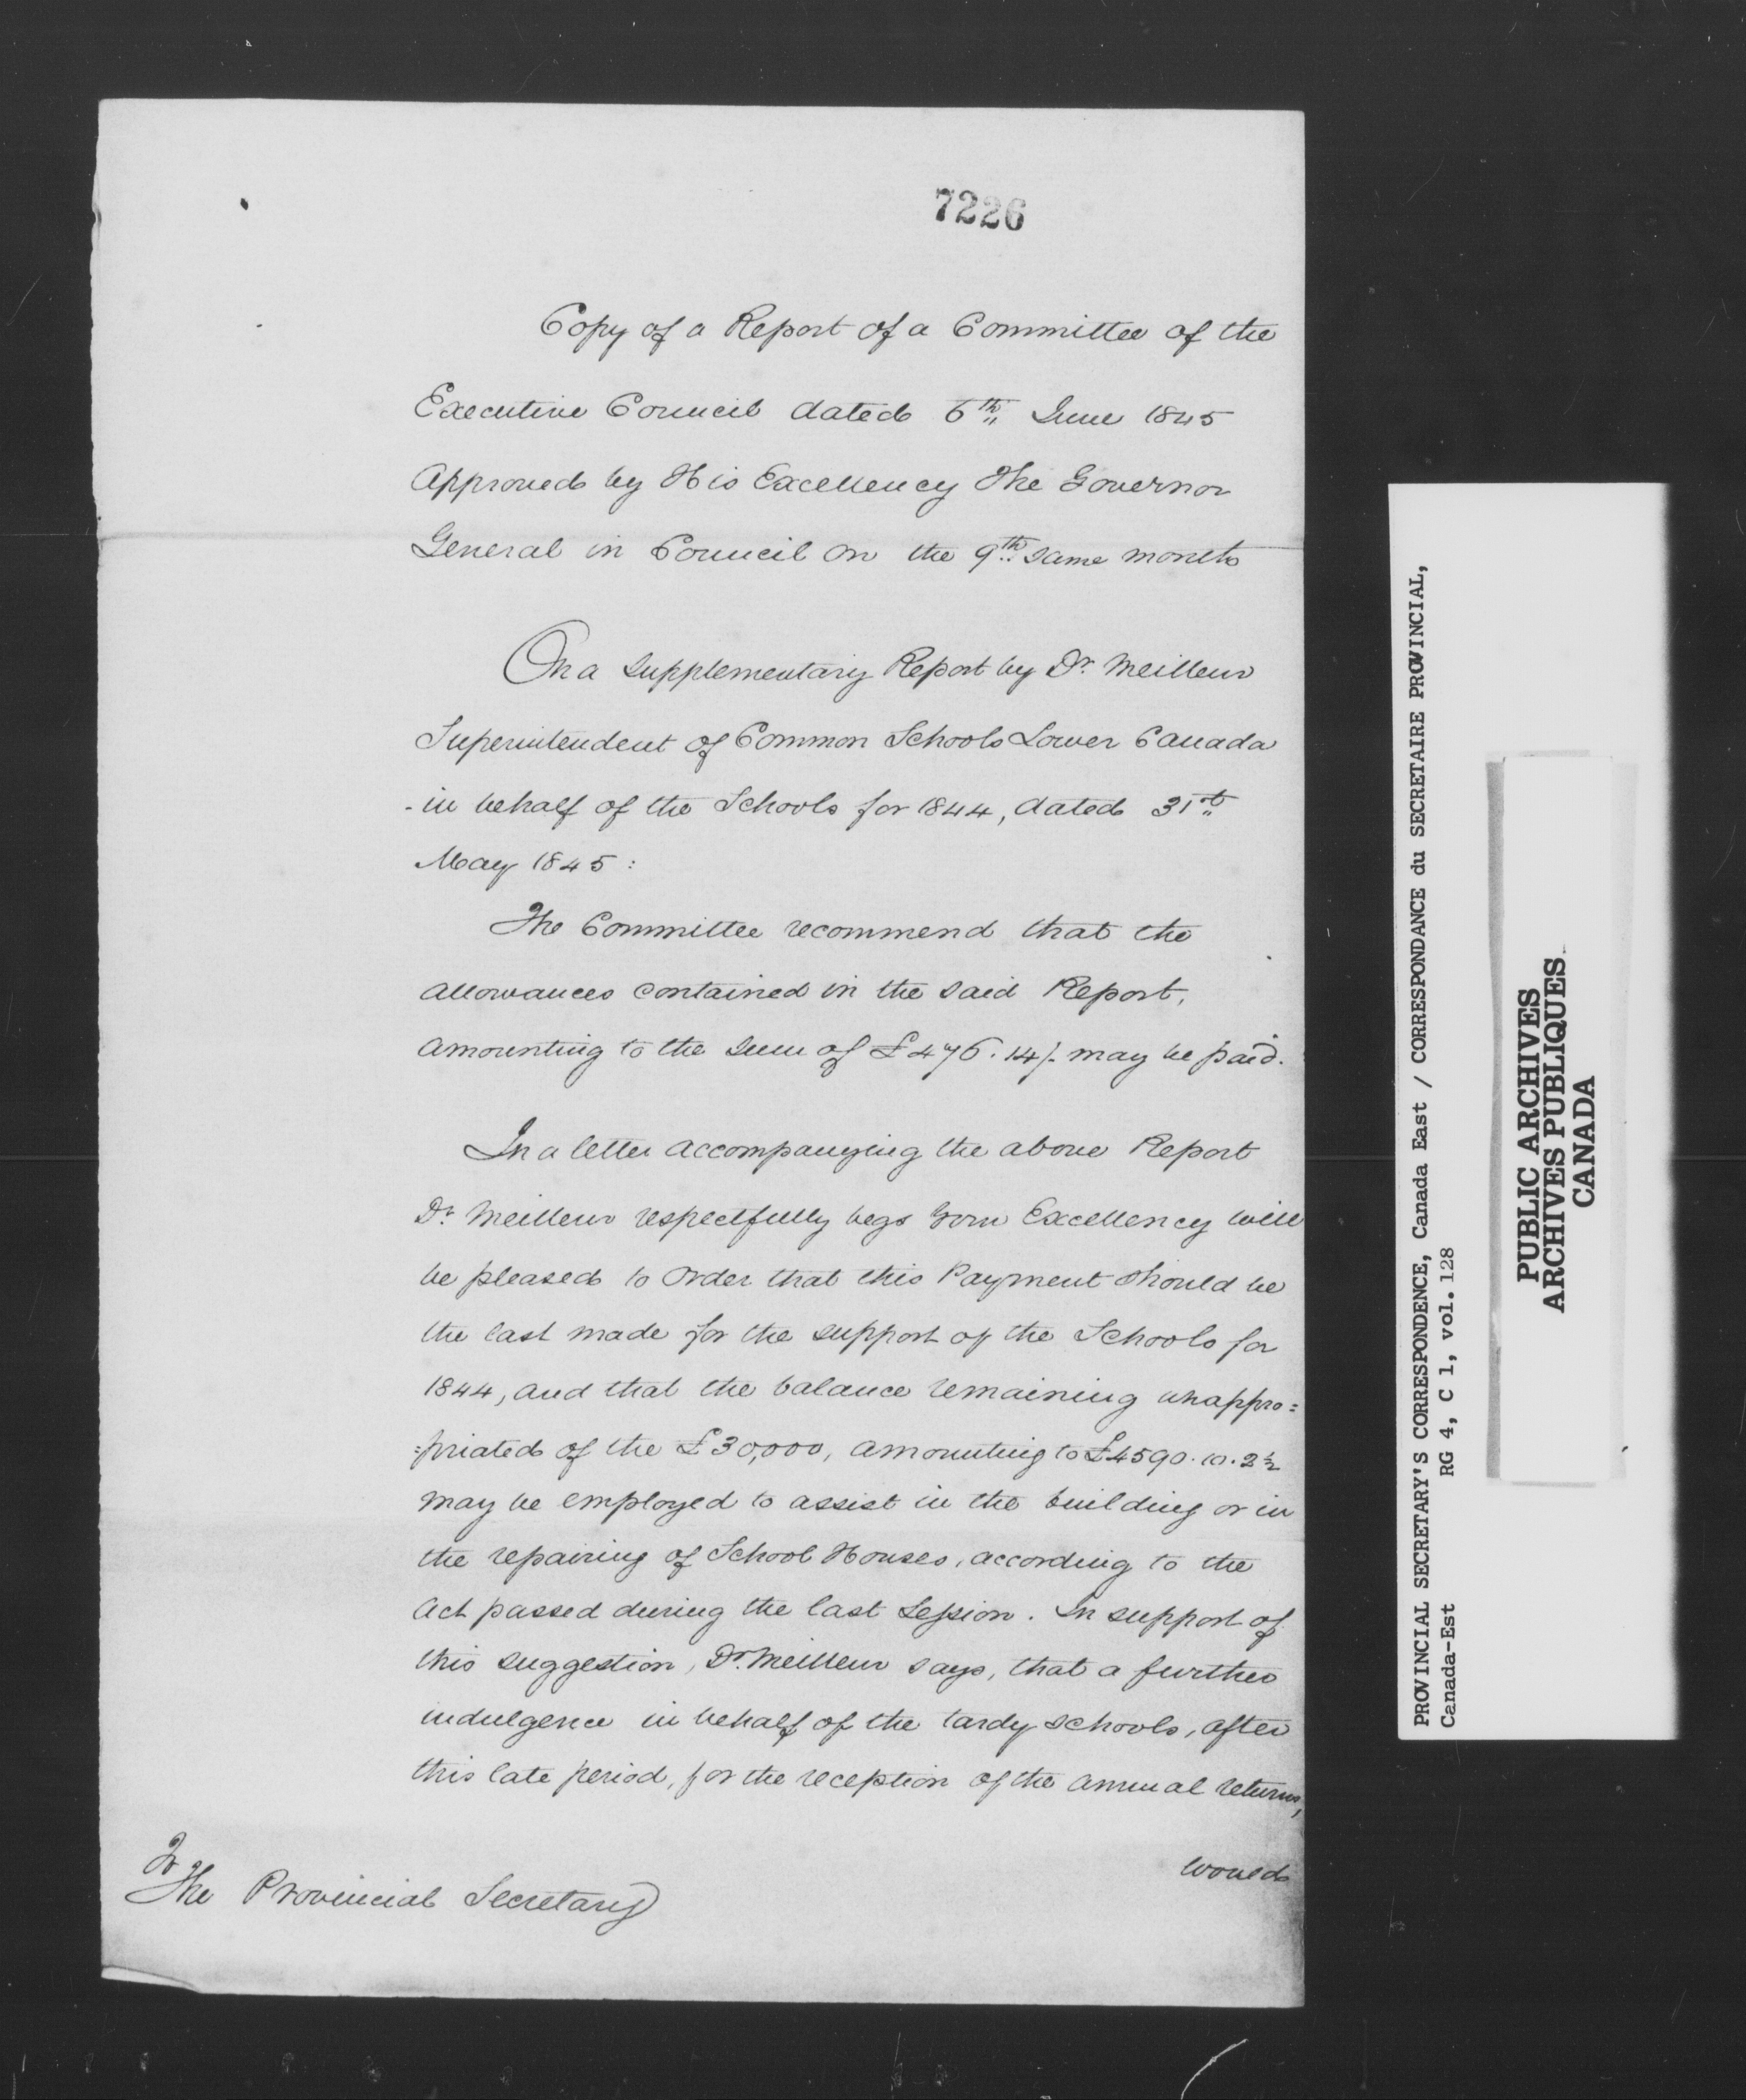 7226
Copy of a Report of a Committee of the
Executive Council dated 6th June 1845
Approved by His Excellency The Governor
General in Council on the 9th same month
On a Supplementary Report by Dr. Meilleur
Superintendent of Common Schools Lower Canada
- in behalf of the Schools for 1844, dated 31st
May 1845 :
The Committee recommend that the
allowances contained in the said Report,
amounting to the sum of £476.14/- may be paid.
In a letter accompanying the above Report
Dr. Meilleur respectfully begs Your Excellency will
be pleased to Order that this Payment should be
the last made for the support of the Schools for
1844, and that the balance remaining unappro=
=priated of the £30,000, amounting to £4590.10.2½
may be employed to assist in the building or in
the repairing of School Houses, according to the
Act passed during the last Session. In support of
this suggestion, Dr. Meilleur says, that a further
indulgence in behalf of the tardy schools, after
this late period, for the reception of the annual returns,
would
To
The Provincial Secretary
PROVINCIAL SECRETARY'S CORRESPONDENCE, Canada East / CORRESPONDANCE du SECRETAIRE PROVINCIAL,
Canada-Est RG 4, C 1, vol. 128
PUBLIC ARCHIVES
ARCHIVES PUBLIQUES
CANADA